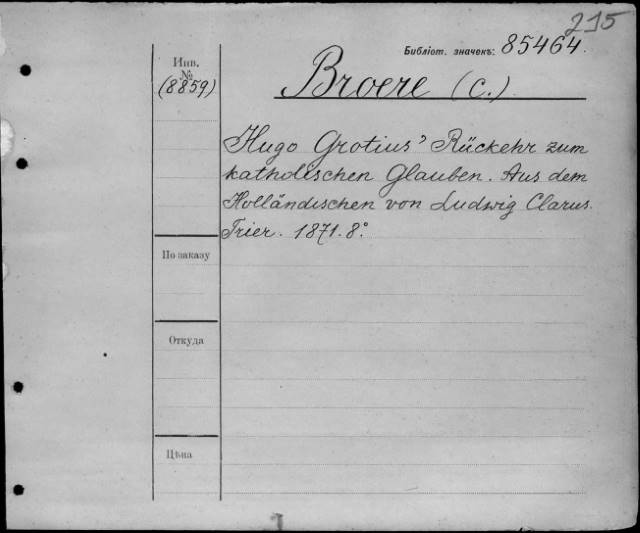 215
Библіот. значекъ: 85464.
Инв.
№
(8859)
Broere (C.)
Hugo Grotius' Rückehr zum
katholischen Glauben. Aus dem
Holländischen von Ludwig Clarus.
Trier. 1871. 8°.
По заказу
Откуда
Цѣна